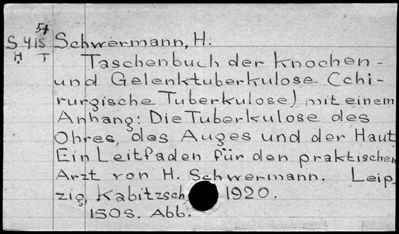 54
S 415 Schwermann, H.
H T
Taschenbuch der Knochen-
und Gelenktuberkulose (chi-
rurgische Tuberkulose) mit einem
Anhang: Die Tuberkulose des
Ohres, des Auges und der Haut
Ein Leitfaden für den praktischen
Arzt von H. Schwermann. Leip-
zig, Kabitzsch, 1920.
150S. Abb.